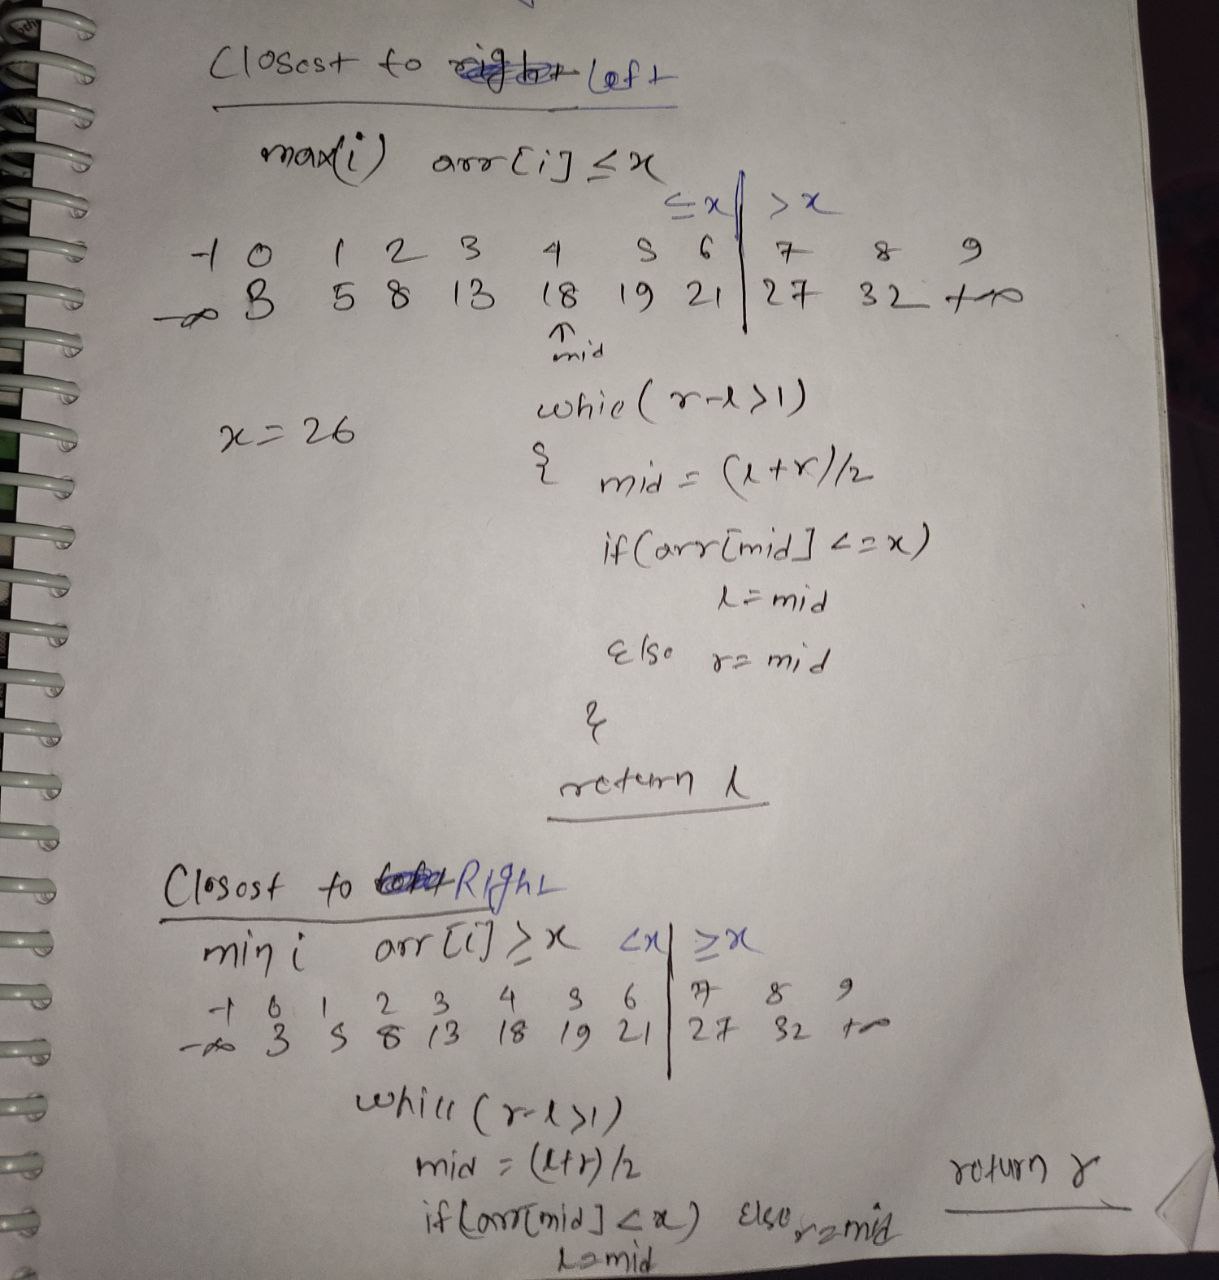 Closest to left
max(i) arr[i] ≤ x
≤x | >x
-1 0 1 2 3 4 5 6 | 7 8 9
-∞ 3 5 8 13 18 19 21 | 27 32 +∞
↑
mid
x = 26
while (r-l>1)
{
mid = (l+r)/2
if(arr[mid] <= x)
l = mid
Else r = mid
}
return l
Closest to Right
min i arr[i] ≥ x <x | ≥x
-1 0 1 2 3 4 5 6 | 7 8 9
-∞ 3 5 8 13 18 19 21 | 27 32 +∞
while (r-l>1)
mid = (l+r)/2
if(arr[mid] < x) Else r=mid
l=mid
return r